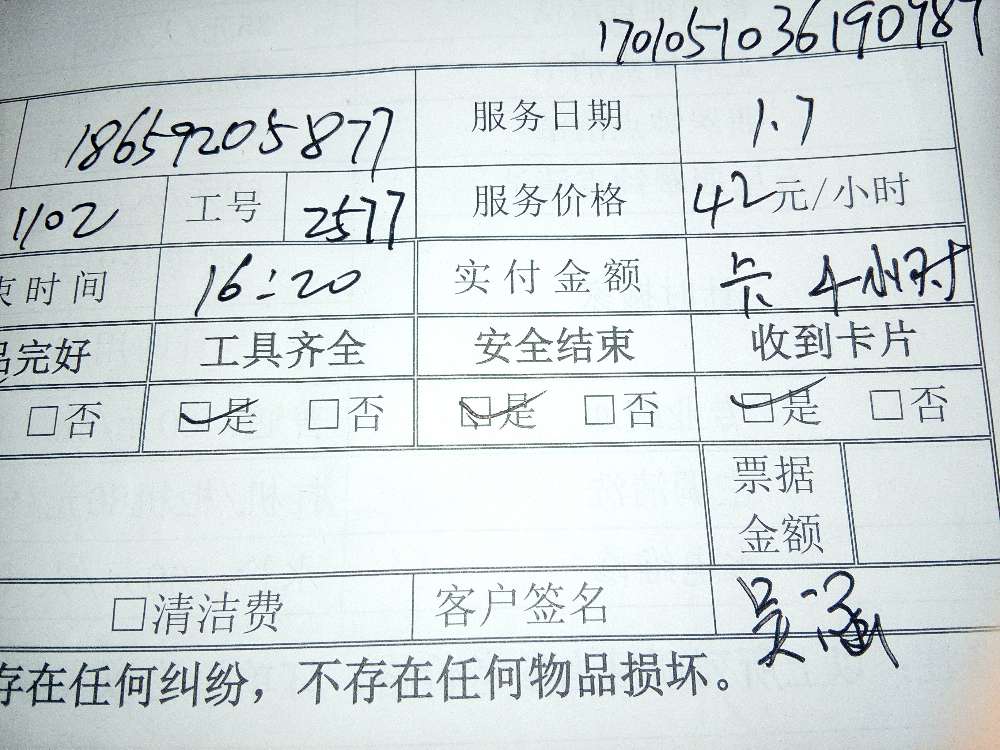 170105103619098
18659205877 服务日期 1.7
1102 工号 2577 服务价格 42元/小时
束时间 16:20 实付金额 卡 4小时
品完好 工具齐全 安全结束 收到卡片
□否 □是 □否 □是 □否 □是 □否
票据
金额
□清洁费 客户签名 吴涵
存在任何纠纷，不存在任何物品损坏。